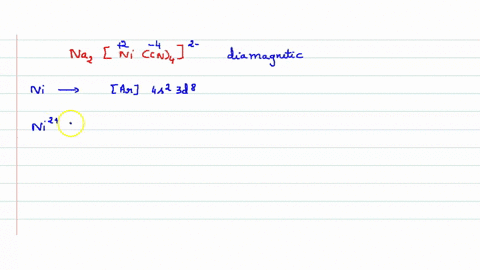 Na₂ [ Ni⁺² (CN)₄⁻⁴ ]²⁻ diamagnetic
Ni ⟶ [Ar] 4s² 3d⁸
Ni²⁺